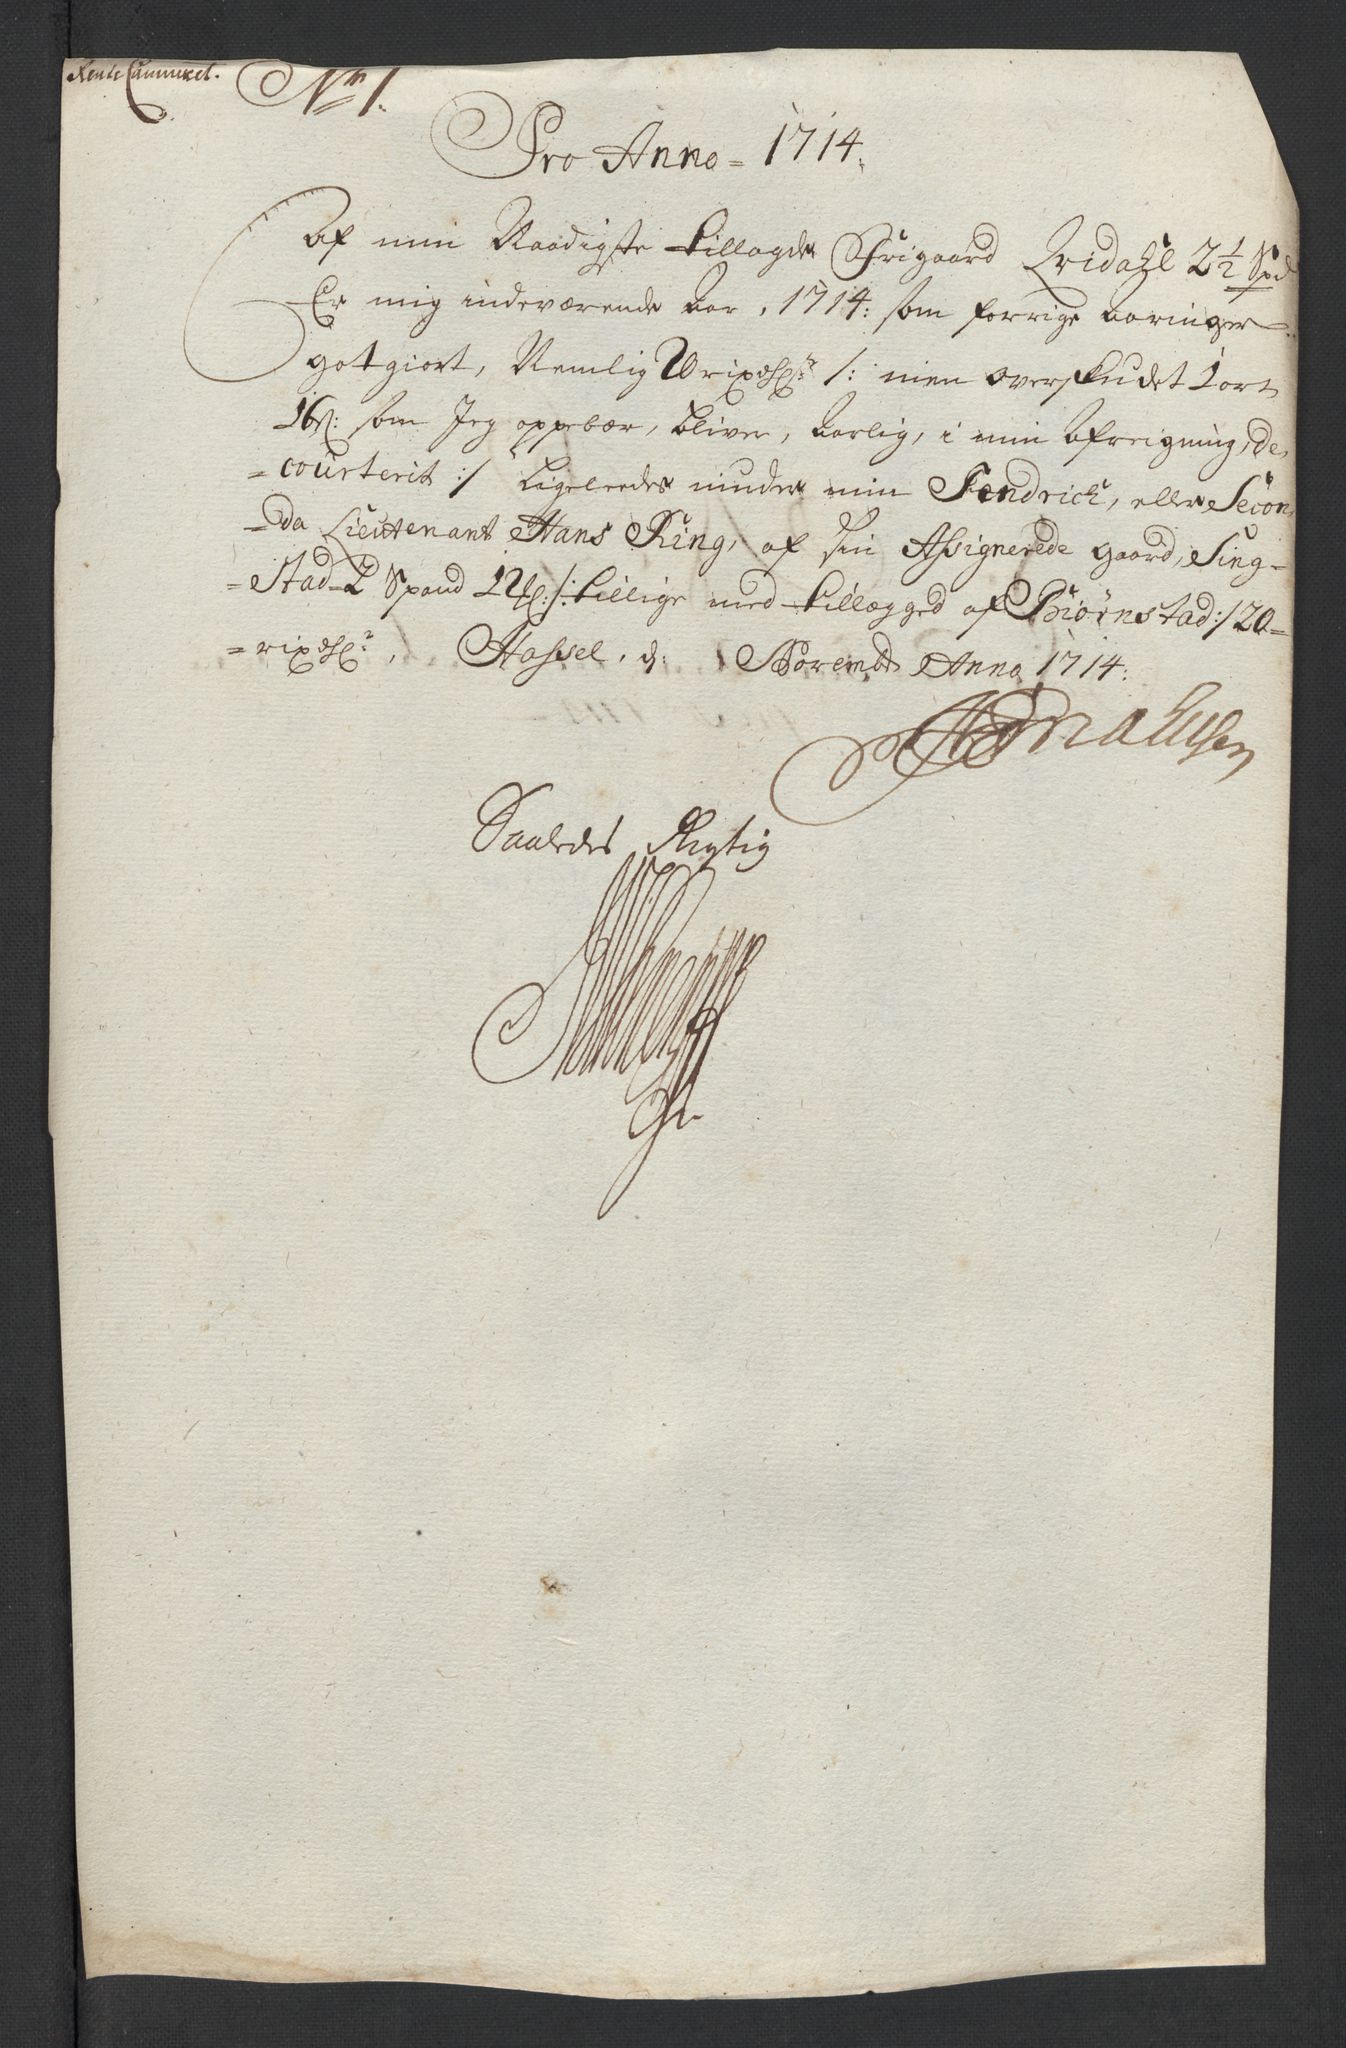 Rente Cammeret.
No 1.
Pro Anno = 1714.
Af min Naadigste tillagde Frigaard Qvidahl 2½ Spd
Er mig indeværende Aar, 1714: som forrige Aaringer
gotgiort, Nemlig rixdlr /: men Overskudet 1 ort
16 s: som Jeg oppebær, bliver, Aarlig, i min Afreigning, de,
=courterit :/ Ligeleedes nyder min Fendrich, eller Secon,
=da Lieutenant Hans Ring, af sin Assignerede gaard, Sing=
=stad 2 Spand /: tillige med tillegged af Biörnstad :/ 20=
=rixdlr, Hassel, d: Novemb: Anno 1714:
Saaledes Rigtig